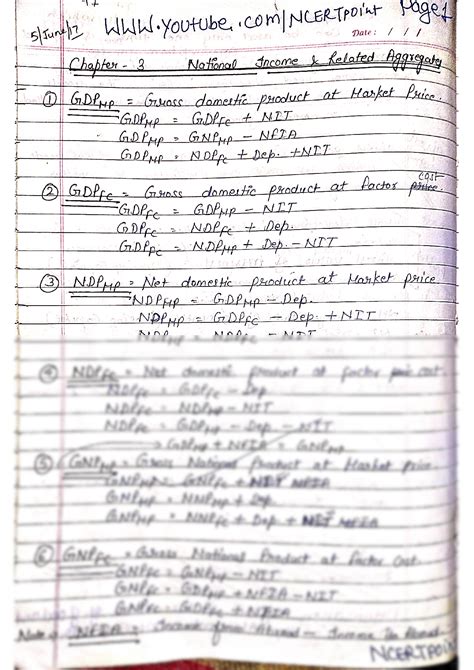 Page 1
5/June/17 WWW.YOUTUBE.COM/NCERTPOINT
Date: / /
Chapter - 3 National Income & Related Aggregates
① GDPMP = Gross domestic product at Market Price.
GDPMP = GDPFC + NIT
GDPMP = GNPMP - NFIA
GDPMP = NDPFC + Dep. + NIT
② GDPFC = Gross domestic product at factor price cost
GDPFC = GDPMP - NIT
GDPFC = NDPFC + Dep.
GDPFC = NDPMP + Dep. - NIT
③ NDPMP = Net domestic product at Market price
NDPMP = GDPMP - Dep.
NDPMP = GDPFC - Dep. + NIT
NDPMP = NDPFC - NIT
④ NDPFC = Net domestic product at factor cost
NDPFC = GDPFC - Dep
NDPFC = NDPMP - NIT
NDPFC = GDPMP - Dep - NIT
GDPMP + NFIA = GNPMP
⑤ GNPMP = Gross National Product at Market Price.
GNPMP = GNPFC + NIT
GNPMP = NNPMP + Dep.
GNPMP = NNPFC + Dep + NIT
⑥ GNPFC = Gross National Product at factor Cost
GNPFC = GNPMP - NIT
GNPFC = GDPMP + NFIA - NIT
GNPFC = GDPFC + NFIA
Note: NFIA = Income from Abroad - Income To Abroad
NCERTPOINT